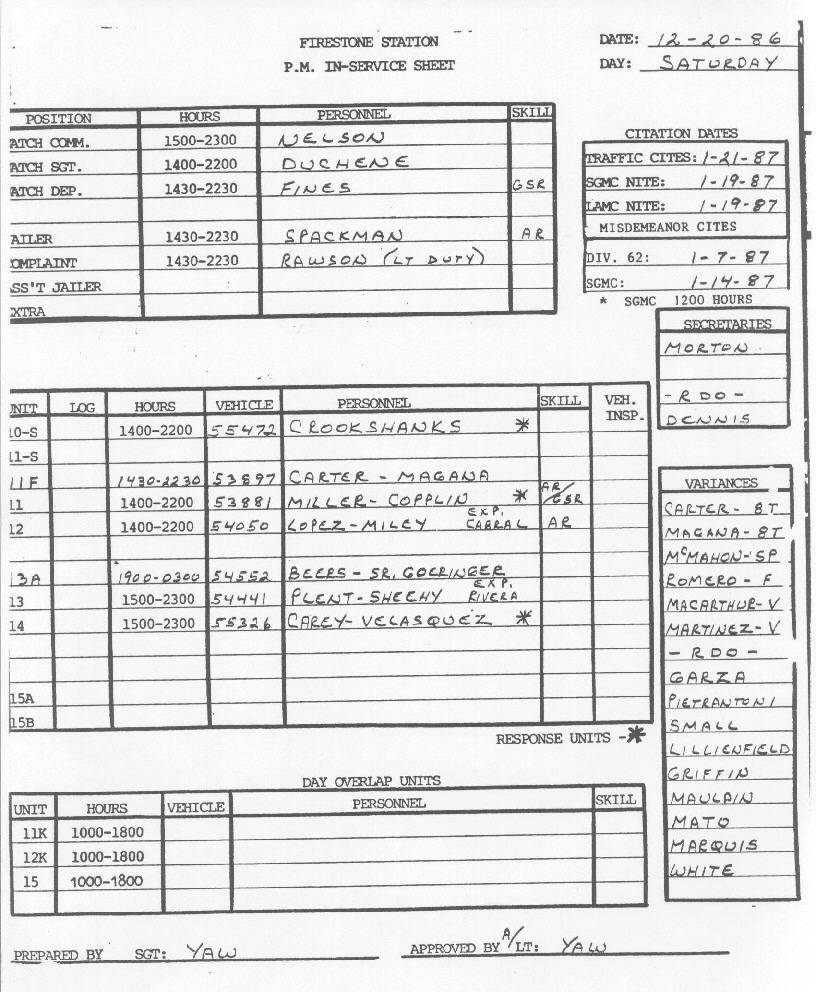 FIRESTONE STATION
P.M. IN-SERVICE SHEET
DATE: 12-20-86
DAY: SATURDAY
POSITION HOURS PERSONNEL SKILL
ATCH COMM. 1500-2300 NELSON
ATCH SGT. 1400-2200 DUCHENE
ATCH DEP. 1430-2230 FINES GSR
AILER 1430-2230 SPACKMAN AR
OMPLAINT 1430-2230 RAWSON (LT DUTY)
SS'T JAILER
XTRA
CITATION DATES
TRAFFIC CITES: 1-21-87
SGMC NITE: 1-19-87
LAMC NITE: 1-19-87
MISDEMEANOR CITES
DIV. 62: 1-7-87
SGMC: 1-14-87
* SGMC 1200 HOURS
SECRETARIES
MORTON
-RDO-
DENNIS
UNIT LOG HOURS VEHICLE PERSONNEL SKILL VEH. INSP.
10-S 1400-2200 55472 CROOKSHANKS *
11-S
11F 1430-2230 53897 CARTER - MAGANA
11 1400-2200 53881 MILLER- COPPLIN * AR/GSR
12 1400-2200 54050 LOPEZ-MILEY EXP. CABRAL AR
13A 1900-0300 54552 BEERS - SR. GOERINGER
13 1500-2300 54441 PLENT-SHEEHY EXP. RIVERA
14 1500-2300 55326 CAREY-VELASQUEZ *
15A
15B
RESPONSE UNITS -*
VARIANCES
CARTER- 8T
MAGANA- 8T
McMAHON-SP
ROMERO - F
MACARTHUR- V
MARTINEZ- V
- RDO -
GARZA
PIETRANTONI
SMALL
LILLIENFIELD
GRIFFIN
MAULDIN
MATO
MARQUIS
WHITE
DAY OVERLAP UNITS
UNIT HOURS VEHICLE PERSONNEL SKILL
11K 1000-1800
12K 1000-1800
15 1000-1800
PREPARED BY SGT: YAW
APPROVED BY A/LT: YAW